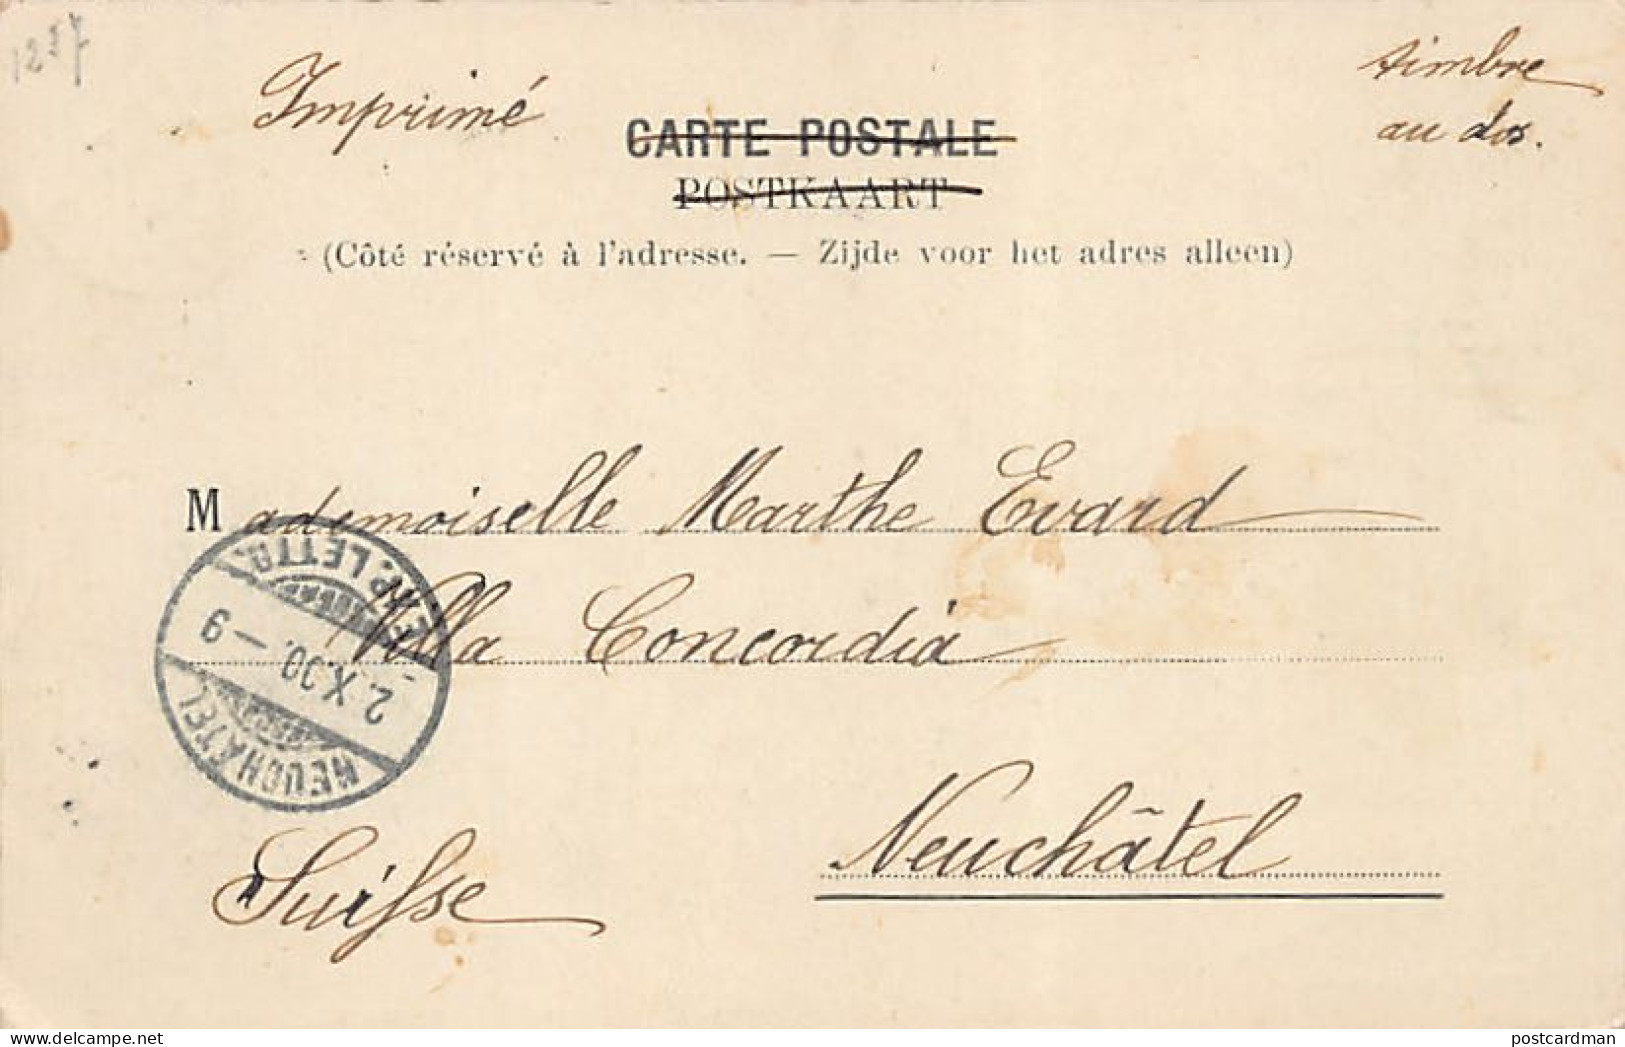 1257
Imprimé
timbre
au dos.
CARTE POSTALE
POSTKAART
(Côté réservé à l'adresse. — Zijde voor het adres alleen)
Mademoiselle Marthe Evard
Villa Concordia
Neuchâtel
Suisse
NEUCHATEL
2.X.00. — 9
EXP. LETTR.
postcardman